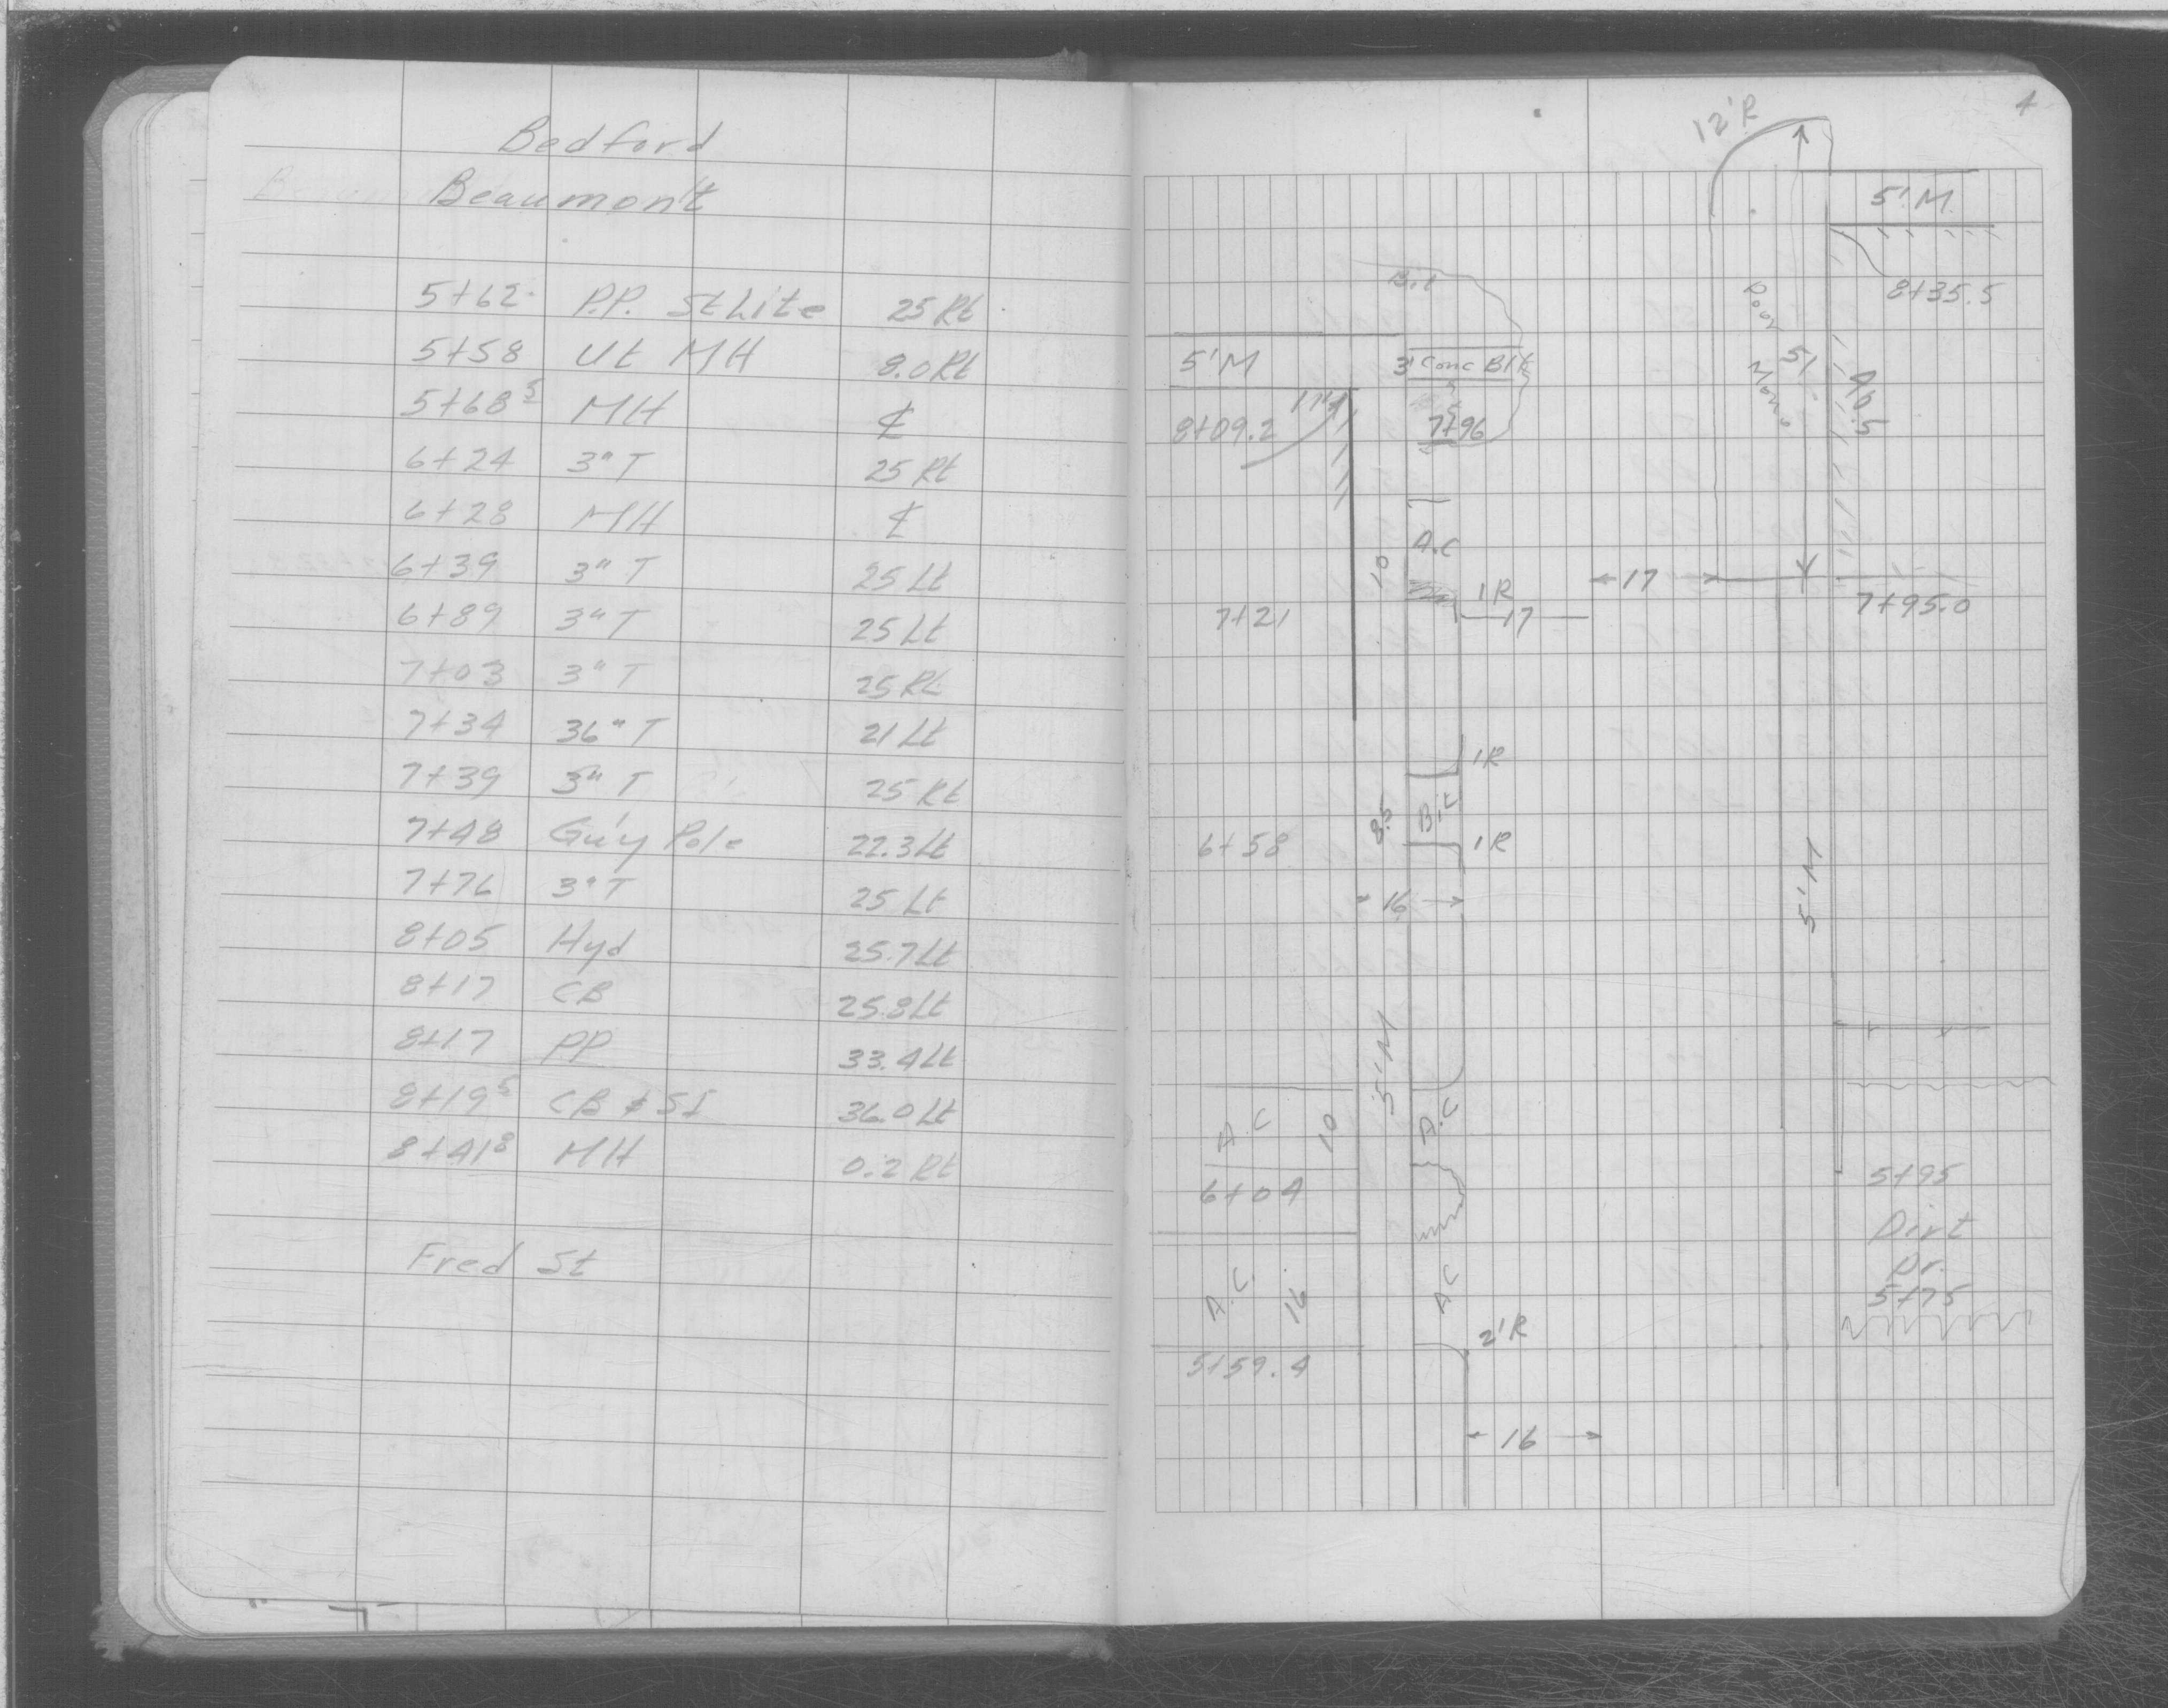 Bedford
Beaumont
5+62 P.P. St Lite 25 Rt
5+58 Ut MH 8.0 Rt
5+68⁵ MH ℄
6+24 3" T 25 Rt
6+28 MH ℄
6+39 3" T 25 Lt
6+89 3" T 25 Lt
7+03 3" T 25 Rt
7+34 36" T 21 Lt
7+39 3" T 25 Rt
7+48 Guy Pole 22.3 Lt
7+76 3" T 25 Lt
8+05 Hyd 25.7 Lt
8+17 CB 25.8 Lt
8+17 PP 33.4 Lt
8+19⁵ CB & SI 36.0 Lt
8+41⁸ MH 0.2 Rt
Fred St
4
12'R
5'M
8+35.5
Bit
5'M
3' Conc Blk
8+09.2
7+96
Poor Mono.
51
40.5
A.C
10
1R
17
17
7+21
7+95.0
1R
Bit
8.5
6+58
1R
16
5'M
5'M
A.C
10
A.C
6+04
5+95
Dirt
Dr.
5+75
A.C.
16
A.C
2'R
5+59.4
16